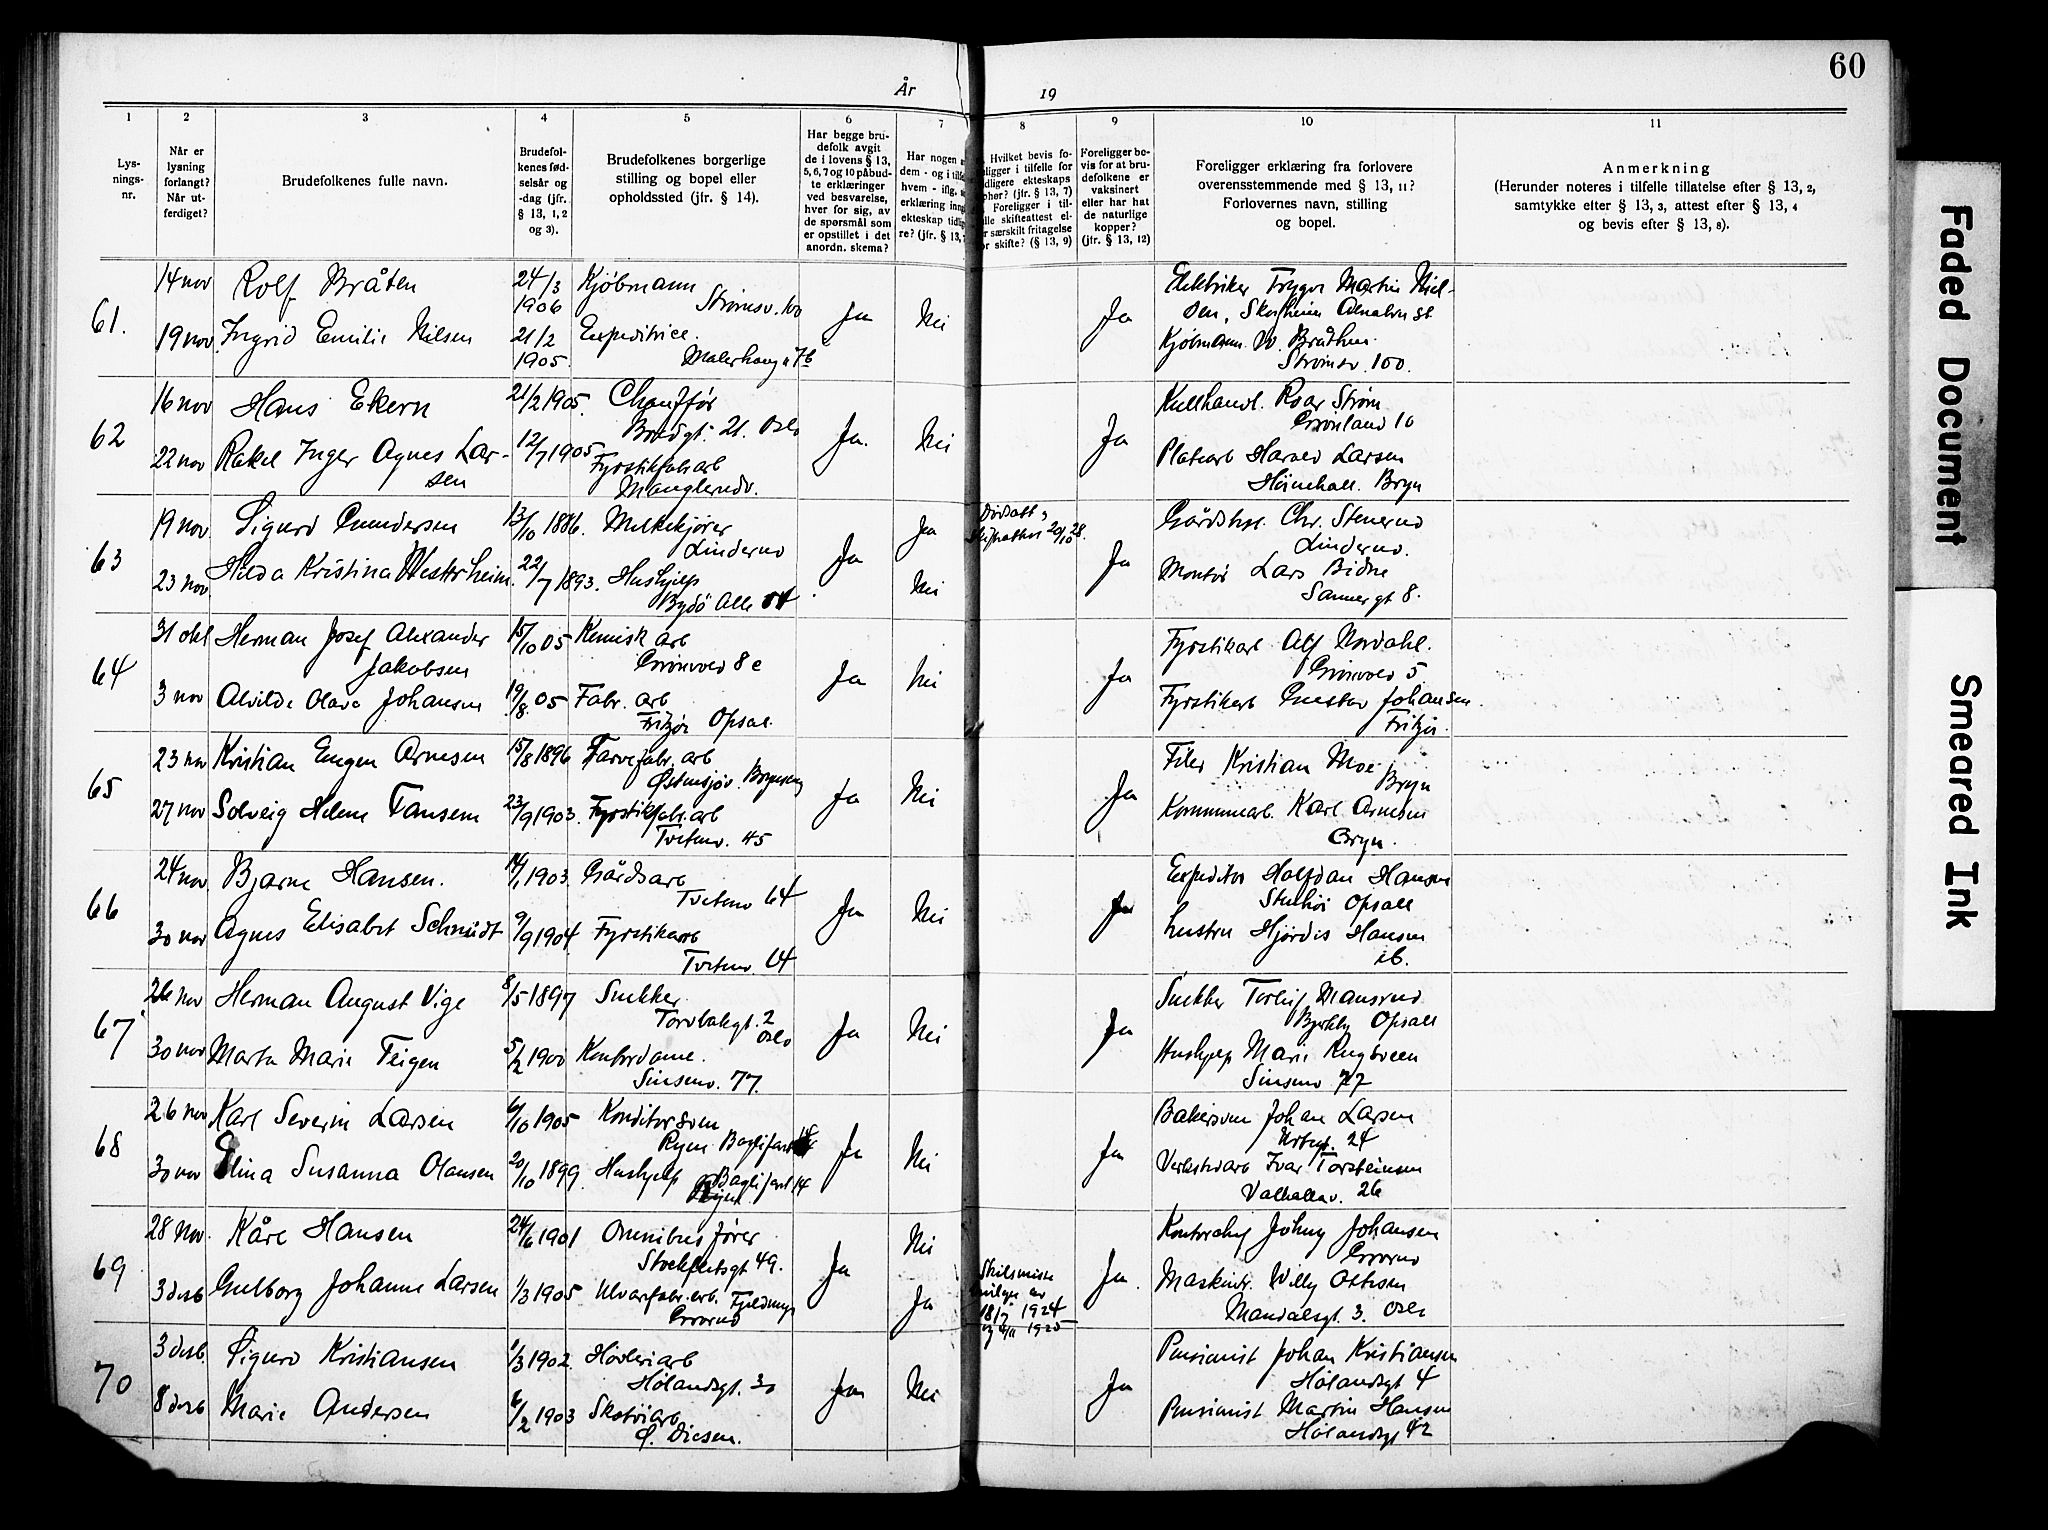 60
År
19
1 2 3 4 5 6 7 8 9 10 11
Lys-
nings-
nr.
Når er
lysning
forlangt?
Når ut-
ferdiget?
Brudefolkenes fulle navn.
Brudefol-
kenes fød-
selsår og
-dag (jfr.
§ 13, 1, 2
og 3).
Brudefolkenes borgerlige
stilling og bopel eller
opholdssted (jfr. § 14).
Har begge bru-
defolk avgit
de i lovens § 13,
5, 6, 7 og 10 påbud-
te erklæringer
ved besvarelse,
hver for sig, av
de spørsmål som
er opstillet i det
anordn. skema?
Har nogen
dem - og i tilf
hvem - iflg.
erklæring inn
ekteskap tidli
re? (jfr. § 13,
Hvilket bevis fo-
ligger i tilfelle for
dligere ekteskaps
phør? (jfr. § 13, 7)
Foreligger i til-
lle skifteattest el-
r særskilt fritagelse
or skifte? (§ 13, 9)
Foreligger be-
vis for at bru-
defolkene er
vaksinert
eller har hat
de naturlige
kopper?
(jfr. § 13, 12)
Foreligger erklæring fra forlovere
overensstemmende med § 13, 11?
Forlovernes navn, stilling
og bopel.
Anmerkning
(Herunder noteres i tilfelle tillatelse efter § 13, 2,
samtykke efter § 13, 3, attest efter § 13, 4
og bevis efter § 13, 8).
61.
14 nov Rolf Bråten 24/3 1906 Kjøbmann
Strømsv. 100
19 nov Ingrid Emilie Nilsen 21/2 1905. Expeditrice.
7b
Ja Nei Ja
Elektriker Trygve Martin Niel-
sen, Skogheim Alnabru st
Kjøbmann W. Bråthen.
Strømsv. 100.
62
16 nov Hans Ekern 21/2 1905. Chauffør
Bredgt. 21. Oslo
22 nov Rakel Inger Agnes Lar-
sen
12/7 1905 Fyrstikfabarb
Manglerudv.
Ja. Nei Ja
Kullhandl. Roar Strøm
Grønland 10
Platearb Harald Larsen
Bryn
63
19 nov Sigurd Gundersen 13/10 1886. Melkekjører
Linderud
23 nov Hilda Kristina Westrheim. 22/7 1893. Hushjelp
Bygdö Alle
Ja Ja Nei
20/10 28.
Ja
Chr. Stenerud
Linderud.
Montør Lars Bidne
Sannergt 8.
64
31 okt Herman Josef Alexander
Jakobsen
15/10 05 Kemisk arb
Grønvold 8 c
3 nov Alvilde Olava Johansen 19/8. 05 Fabr. arb
Fritzø Opsal.
Ja Nei Ja
Fyrstikarb Alf Nordahl.
Grønvold 5
Fyrstikarb Gustav Johansen.
Fritzø.
65
23 nov Kristian Eugen Arnesen 15/8 1896 Farvefabr. arb
Østensjøv. Brynseng
27 nov Solveig Helene Fansem 23/9 1903. Fyrstikfabr. arb
Tvetenv. 45
Ja Nei Ja
Filer Kristian Moe
Bryn
Kommunearb. Karl Arnesen
Bryn.
66
24 nov Bjarne Hansen. 14/1 1903. Gårdsarb
Tvetenv 64
30 nov Agnes Elisabet Schmidt 9/9 1904. Fyrstikarb
Tvetenv. 64
Ja Nei Ja
Expeditør Halfdan Hansen
Opsall
Hustru Hjørdis Hansen
ib.
67
26 nov Herman August Vige 8/5 1897 Snekker.
Torvbakgt. 2
Oslo
30 nov Marta Marie Teigen 5/2 1900 Kontordame.
Sinsenv. 77.
Ja Nei Ja
Snekker Torleif Mansrud
Opsall
Hushjelp Marie Rugsveen
Sinsenv 77
68
26 nov Karl Severin Larsen 6/10 1905 Konditorsven
Ryen
30 nov Elina Susanna Olausen 20/10 1899. Hushjelp
Ryen 14
Ja Nei Ja
Bakersven Johan Larsen
Urtegt. 24
Verkstedarb Ivar Torsteinsen
Valhallav. 26
69
28 nov. Kåre Hansen 24/6 1901 Omnibusfører
Stockfletsgt 49.
3 desb Gulborg Johanne Larsen 1/3 1905 Ulvarefabr. arb.
Grorud
Ja Nei Ja
Skilsmisse
bevilgn. av
18/7 1924
og 4/11 1925
Ja.
Kontorchef Johny Johansen
Grorud
Maskinr. Willy Ottesen
Mandalsgt. 3. Oslo
70
3 desb. Sigurd Kristiansen 1/3 1902. Høvleriarb
Hølandsgt. 30
8 desb Marie Andersen 6/2 1903 Skotøiarb.
Ø. Disen.
Ja Nei Ja
Pensionist Johan Kristiansen
Hølandsgt 4
Pensionist Martin Hansen
Hølandsgt 42
Faded Document
Smeared Ink